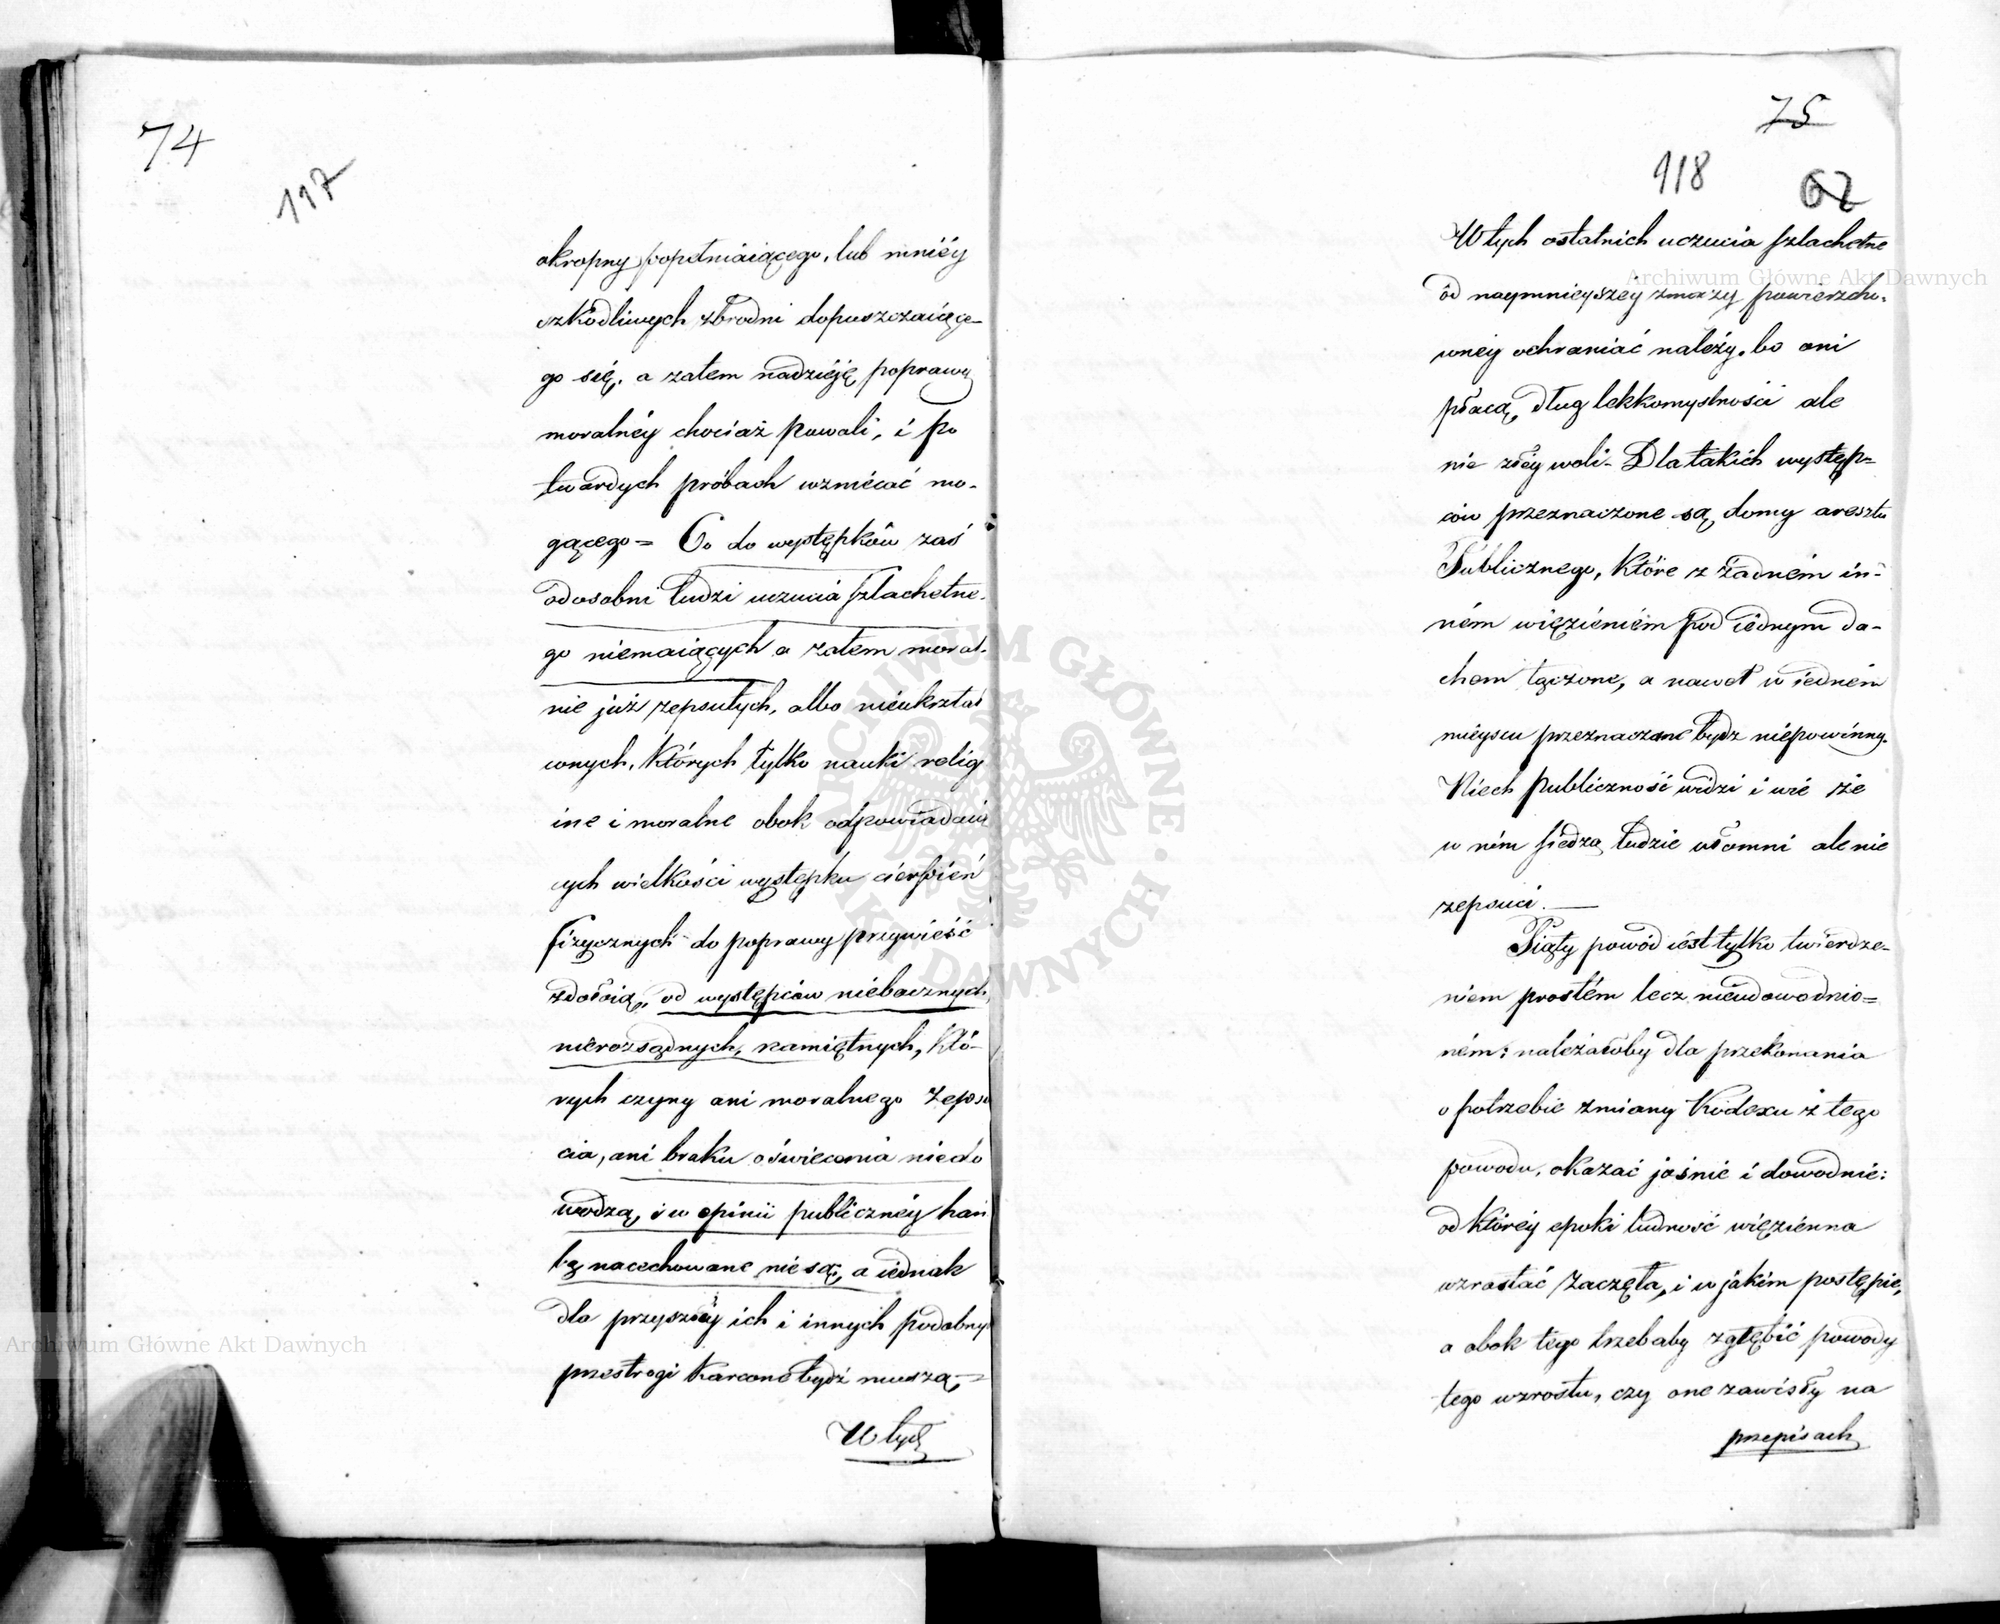 74
117
okropny popełniaiącego, lub mniéy
szkodliwych zbrodni dopuszczaiące-
go się, a zatem nadzieję poprawy
moralnéy chociaż powoli, i po
twardych próbach wzniécać mo-
gącego = Co do występków zaś
od osobni ludzi uczucia szlachetne-
go niemaiących a zatem moral-
nie już zepsutych, albo niéukształ
conych, których tylko nauki relig
ine i moralne obok odpowiadaią
cych wielkości występku cierpień
fizycznych do poprawy przywieść
zdołaią, od występców niébacznych,
nierozsądnych, namiętnych, któ-
rych czyny ani moralnego zepsu
cia, ani braku oświecenia niedo
wodzą, i w opinii publicznéy hań
bą nacechowane nie są, a iednak
dla przyszłéy ich i innych podobnyc
przestrogi karcone bydź muszą, =
W tych
75
118
62
W tych ostatnich uczucia szlachetne
od naymnieyszéy zmazy powierzcho-
wnéy ochraniać należy, bo oni
płacą, dług lekkomyslności ale
nie złéy woli - Dla takich występ=
ców przeznaczone są, domy aresztu
Publicznego, które z żadném in-
ném więziéniém pod iédnym da-
chem łączone, a nawet w iedném
mieyscu przeznaczone bydz niépowinny.
Niech publiczność widzi i wié że
w ném siedzą ludzie ułomni ale nie
zepsuci. —
Piąty powód iést tylko twierdze-
niem prostém lecz nieudowodnio=
ném: należałoby dla przekonania
o potrzebie zmiany Kodexu z tego
powodu, okazać jaśnie i dowodnie:
od któréy epoki ludność więziénna
wzrastać zaczęła, i w jakim postępie,
a obok tego trzebaby zgłębić powody
tego wzrostu, czy one zawisły na
przepisach
Archiwum Główne Akt Dawnych
Archiwum Główne Akt Dawnych
ARCHIWUM GŁÓWNE AKT DAWNYCH